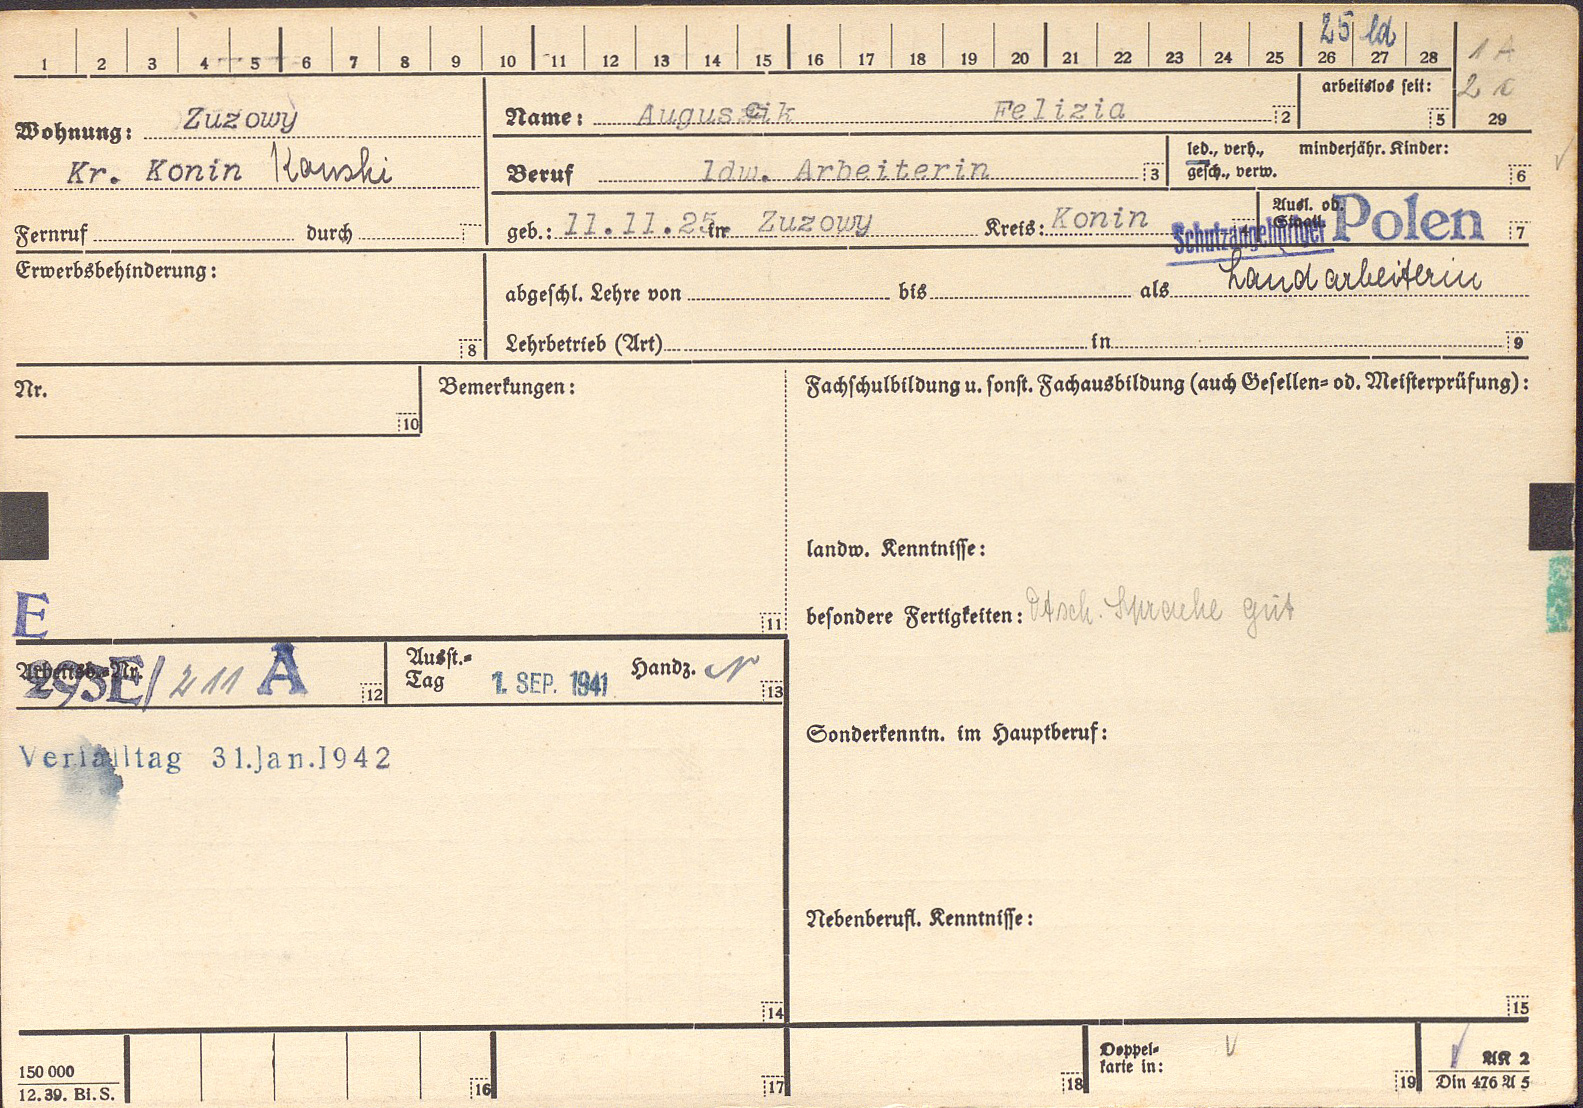 25 ld
1 2 3 4 5 6 7 8 9 10 11 12 13 14 15 16 17 18 19 20 21 22 23 24 25 26 27 28
1 A
2
29
arbeitslos seit:
5
Wohnung: Zuzowy
Kr. Konin Konski
Fernruf durch
Name: Auguscik Felizia 2
Beruf ldw. Arbeiterin 3
led., verh., minderjähr. Kinder:
gesch., verw. 6
geb.: 11.11.25 in Zuzowy Kreis: Konin
Ausl. od.
Staatl.
Schutzangehöriger Polen 7
Erwerbsbehinderung:
8
abgeschl. Lehre von bis als Landarbeiterin
Lehrbetrieb (Art) in 9
Nr.
10
Bemerkungen:
11
Fachschulbildung u. sonst. Fachausbildung (auch Gesellen= od. Meisterprüfung):
landw. Kenntnisse:
besondere Fertigkeiten: Dtsch. Sprache gut
E
Arbeitsb.-Nr.
293E/211 A 12
Ausst.=
Tag 1. SEP. 1941 Handz. N 13
Verfalltag 31.Jan.1942
14
Sonderkenntn. im Hauptberuf:
Nebenberufl. Kenntnisse:
15
150 000
12.39. Bl. S.
16
17
18
Doppel=
karte in:
19
AK 2
Din 476 A 5